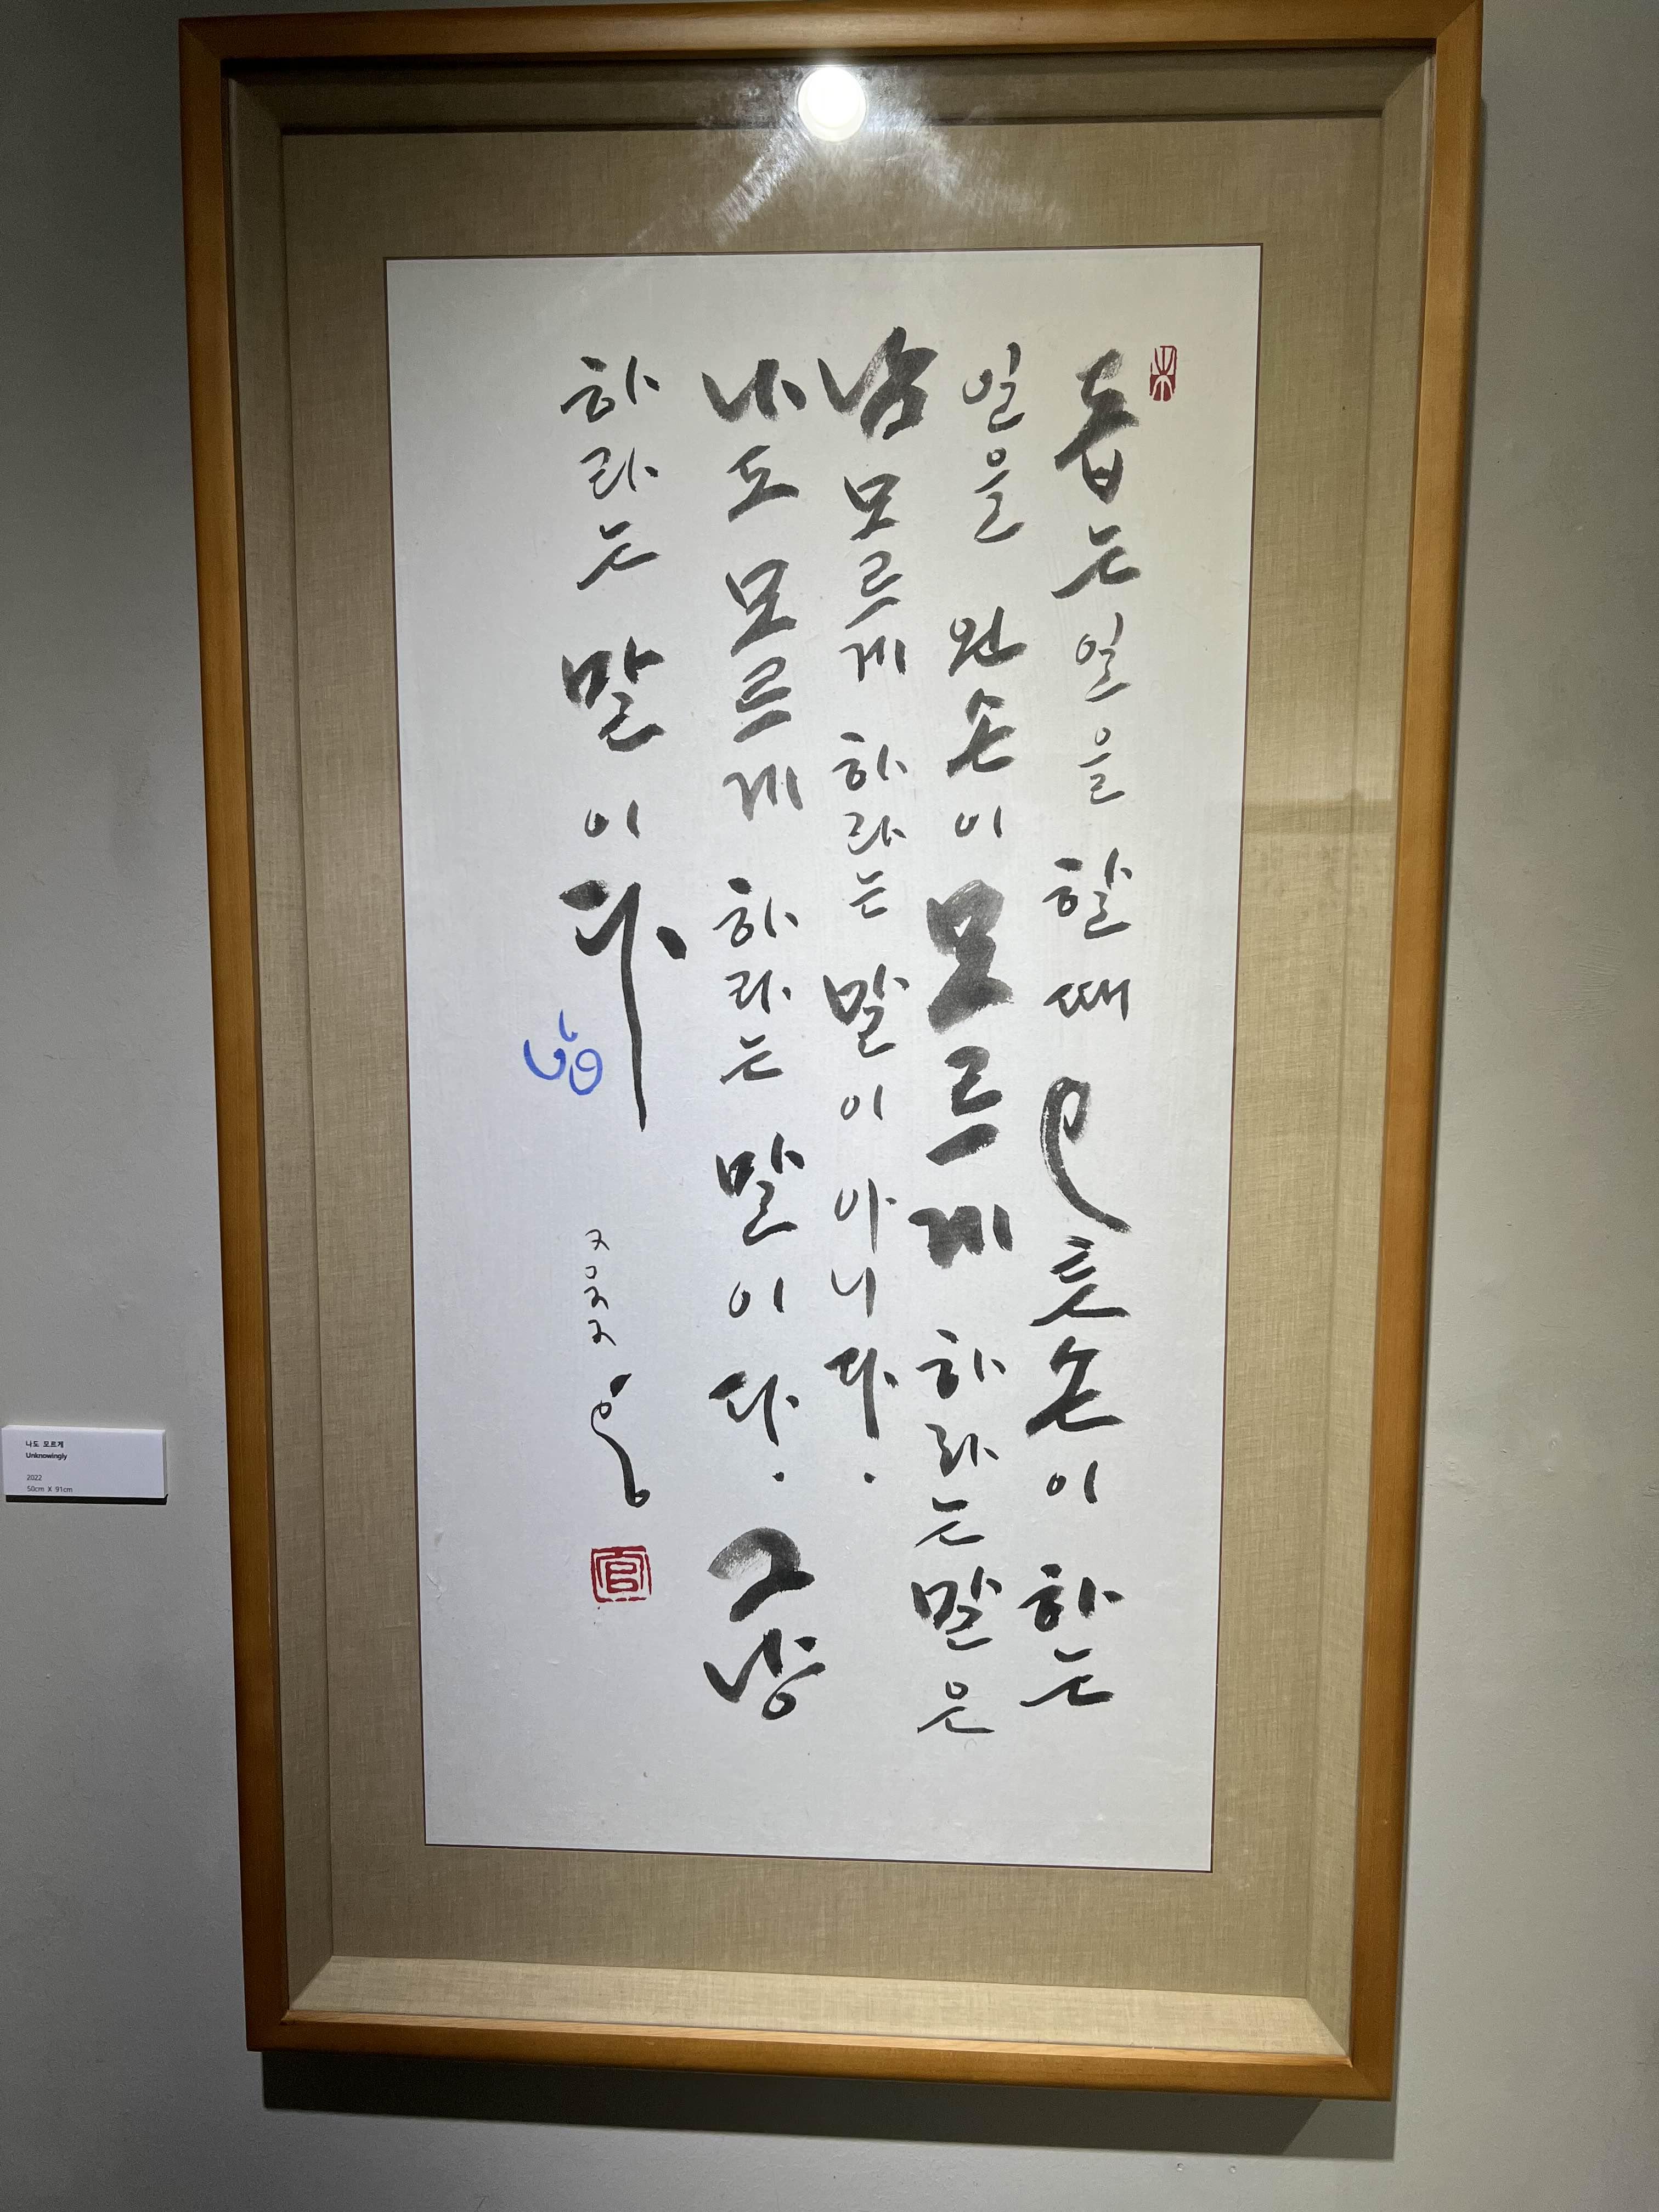 돕는 일을 할 때 오른손이 하는
일을 왼손이 모르게 하라는 말은
남 모르게 하라는 말이 아니다.
나도 모르게 하라는 말이다. 그냥
하라는 말이다
나도 모르게
Unknowingly
2022
50cm X 91cm